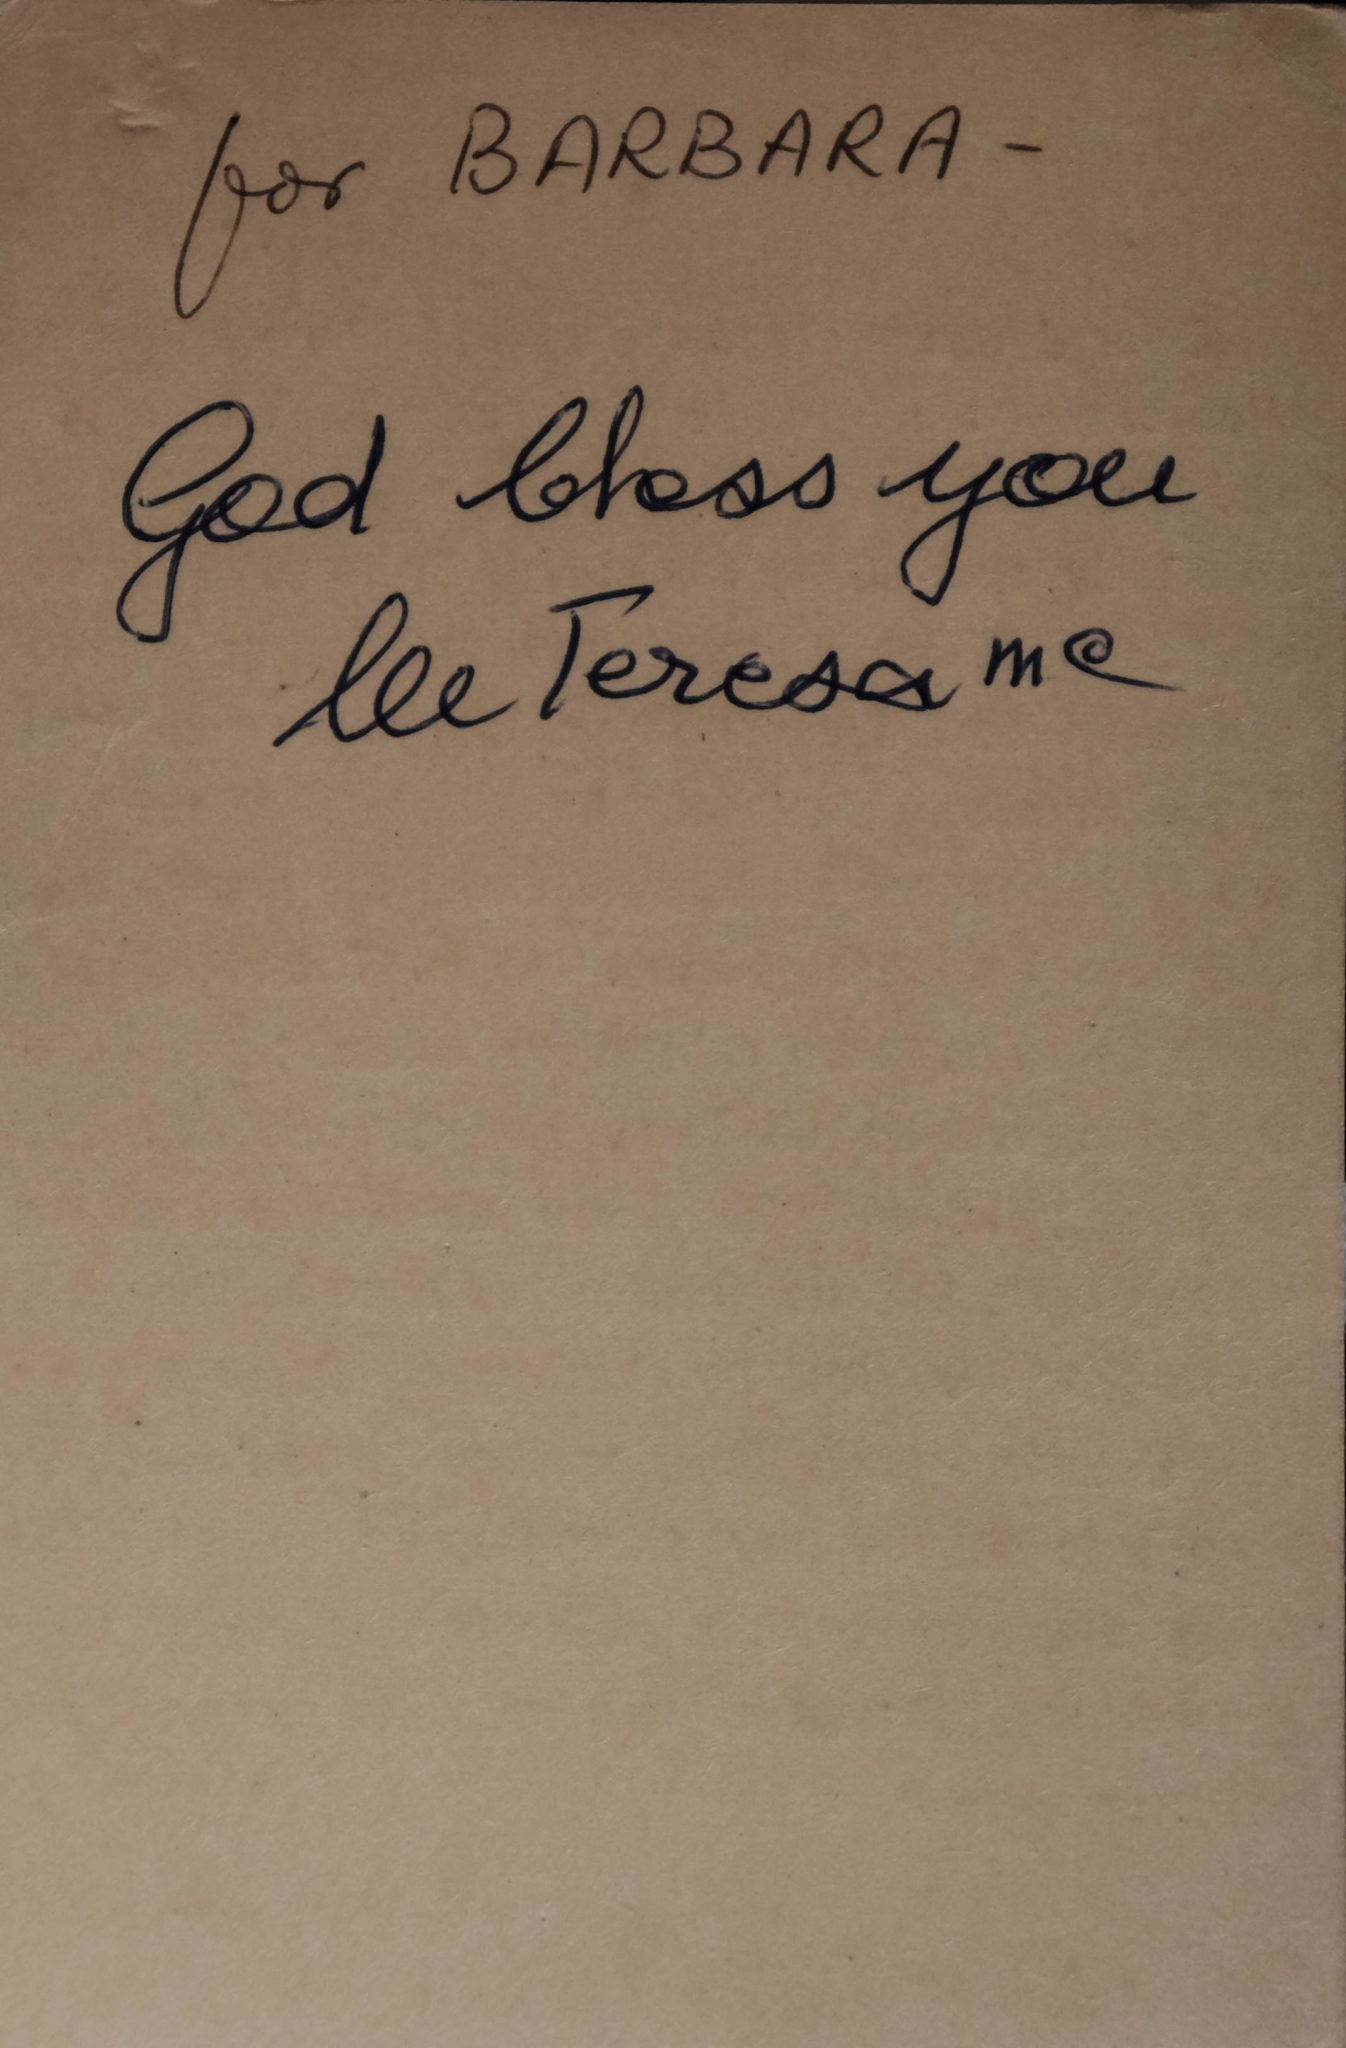 for BARBARA -
God bless you
lle Teresa mc